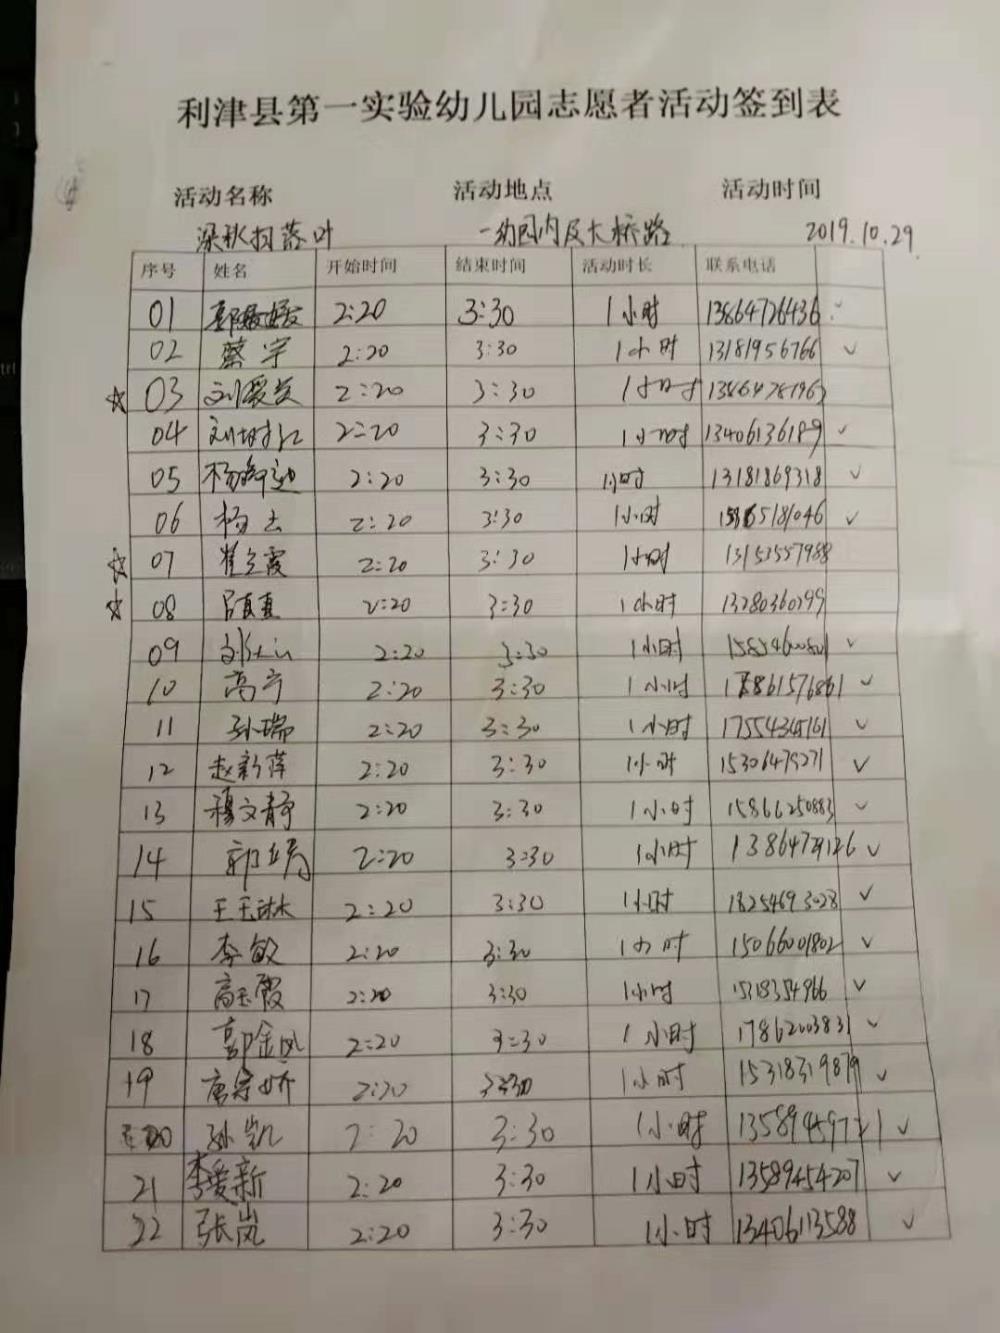 利津县第一实验幼儿园志愿者活动签到表
活动名称 活动地点 活动时间
深秋扫落叶 一幼园内及大桥路 2019.10.29
序号 姓名 开始时间 结束时间 活动时长 联系电话
01 2:20 3:30 1小时 13864726436
02 蔡宇 2:20 3:30 1小时 13181956766 ✓
☆ 03 刘爱英 2:20 3:30 1小时
04 2:20 3:30 1小时 13406136189 ✓
05 2:20 3:30 1小时 13181869318 ✓
06 杨杰 2:20 3:30 1小时 ✓
☆ 07 崔立霞 2:20 3:30 1小时 13153557988
☆ 08 2:20 3:30 1小时 13280360799
09 2:20 3:30 1小时 ✓
10 高宁 2:20 3:30 1小时 ✓
11 孙瑞 2:20 3:30 1小时 17554345161 ✓
12 赵新萍 2:20 3:30 1小时 15306479271 ✓
13 穆文静 2:20 3:30 1小时 15866250883 ✓
14 2:20 3:30 1小时 ✓
15 王玉琳 2:20 3:30 1小时 18254693028 ✓
16 李敏 2:20 3:30 1小时 15066001802 ✓
17 高玉霞 2:20 3:30 1小时 15318354966 ✓
18 郭金凤 2:20 3:30 1小时 17862003831 ✓
19 唐宗娇 2:20 3:30 1小时 15318319879 ✓
20 孙凯 2:20 3:30 1小时 ✓
21 李爱新 2:20 3:30 1小时 13589454207 ✓
22 张岚 2:20 3:30 1小时 13406113588 ✓